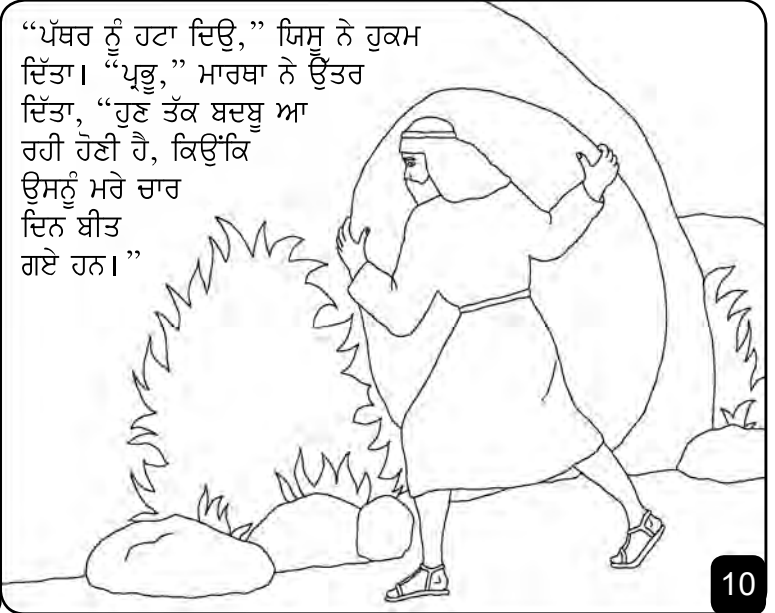 “ਪੱਥਰ ਨੂੰ ਹਟਾ ਦਿਉ,” ਯਿਸੂ ਨੇ ਹੁਕਮ
ਦਿੱਤਾ। “ਪ੍ਰਭੂ,” ਮਾਰਥਾ ਨੇ ਉੱਤਰ
ਦਿੱਤਾ, “ਹੁਣ ਤੱਕ ਬਦਬੂ ਆ
ਰਹੀ ਹੋਣੀ ਹੈ, ਕਿਉਂਕਿ
ਉਸਨੂੰ ਮਰੇ ਚਾਰ
ਦਿਨ ਬੀਤ
ਗਏ ਹਨ।”
10